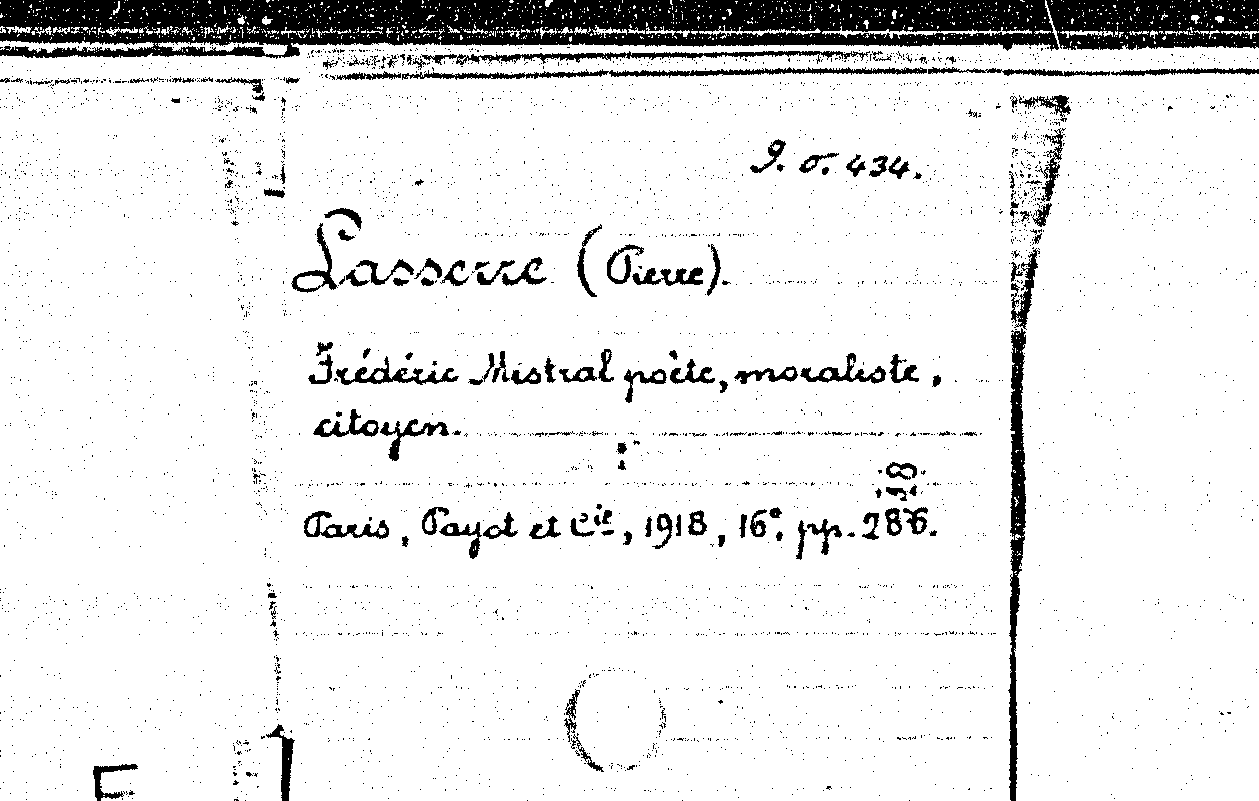 9. σ. 434.
Lasserre (Pierre).
Frédéric Mistral poète, moraliste,
citoyen.
Paris, Payot et Cie, 1918, 16°. pp. 286.